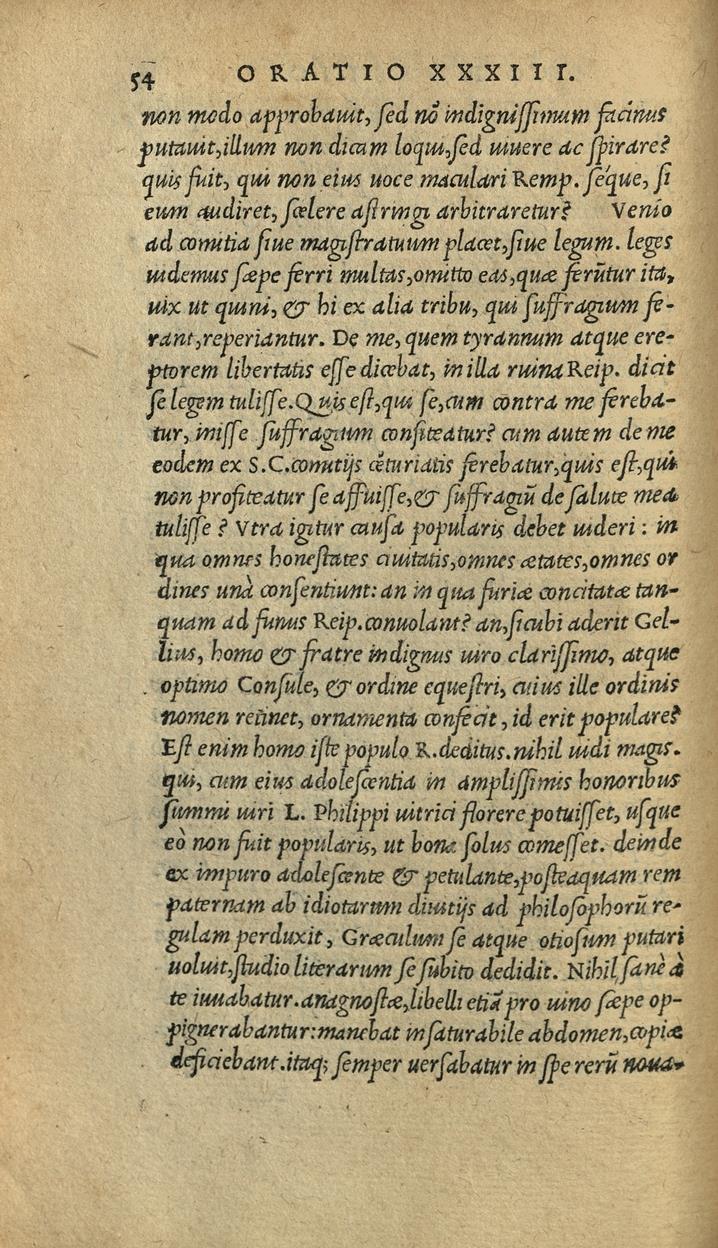 54 ORATIO XXXIII.
non modo approbauit, sed nō indignissimum facinus
putauit, illum non dicam loqui, sed uiuere ac spirare?
quis fuit, qui non eius uoce maculari Remp. séque, si
eum audiret, scelere astringi arbitraretur? Venio
ad comitia siue magistratuum placet, siue legum. leges
uidemus sæpe ferri multas, omitto eas, quæ ferūtur ita,
uix ut quini, & hi ex alia tribu, qui suffragium fe-
rant, reperiantur. De me, quem tyrannum atque ere-
ptorem libertatis esse dicebat, in illa ruina Reip. dicit
se legem tulisse. Quis est, qui se, cum contra me fereba-
tur, inisse suffragium confiteatur? cum autem de me
eodem ex S.C. comitijs cēturiatis ferebatur, quis est, qui
non profiteatur se affuisse, & suffragiū de salute mea
tulisse? Vtra igitur causa popularis debet uideri: in
qua omnes honestates ciuitatis, omnes ætates, omnes or
dines unà consentiunt: an in qua furiæ concitatæ tan-
quam ad funus Reip. conuolant? an, sicubi aderit Gel-
lius, homo & fratre indignus uiro clarissimo, atque
optimo Consule, & ordine equestri, cuius ille ordinis
nomen retinet, ornamenta confecit, id erit populare?
Est enim homo iste populo R. deditus. nihil uidi magis.
qui, cum eius adolescentia in amplissimis honoribus
summi uiri L. Philippi uitrici florere potuisset, usque
eò non fuit popularis, ut bona solus comesset. deinde
ex impuro adolescente & petulante, posteaquam rem
paternam ab idiotarum diuitijs ad philosophorū re-
gulam perduxit, Græculum se atque otiosum putari
uoluit, studio literarum se subito dedidit. Nihil sanè à
te iuuabatur. anagnostæ, libelli etiā pro uino sæpe op-
pignerabantur: manebat insaturabile abdomen, copiæ
deficiebant. itaq; semper uersabatur in spe rerū noua-